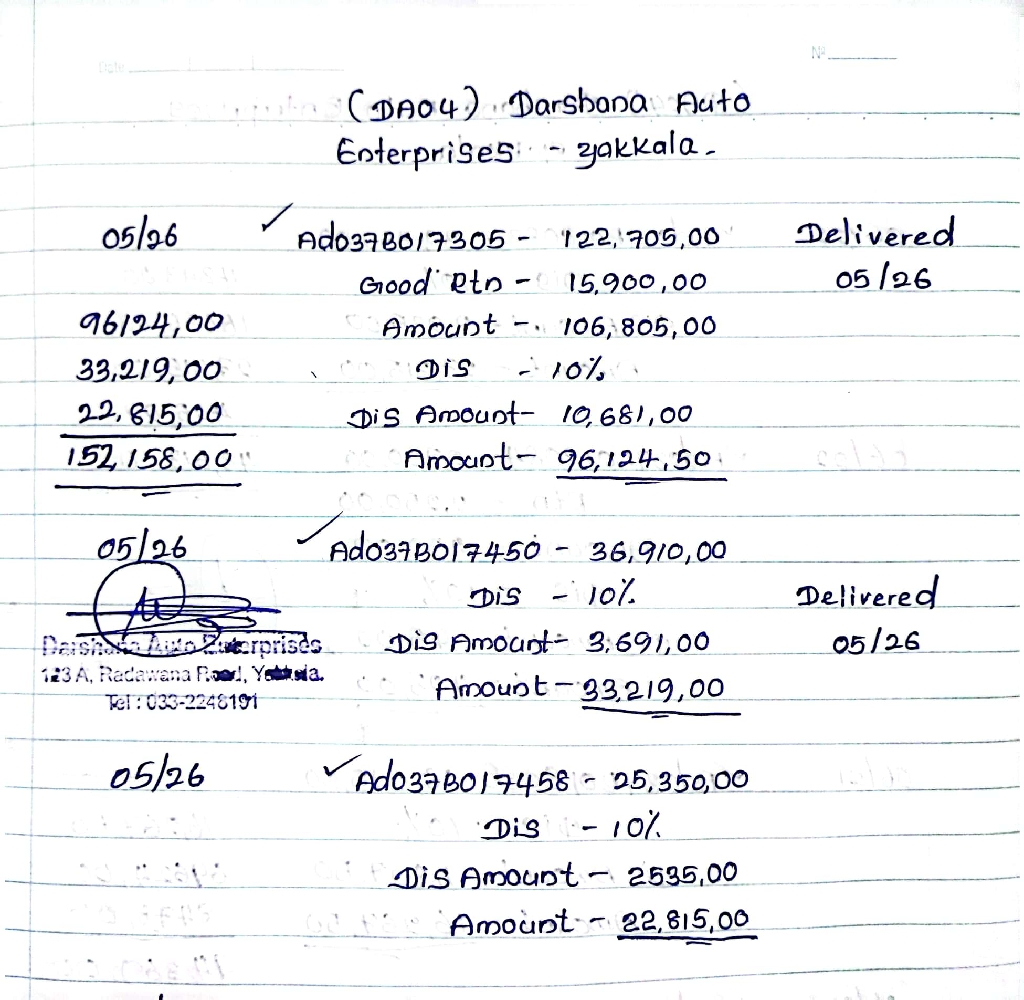 Date
Nº
(DA04) Darshana Auto
Enterprises - Yakkala -
05/26 ✓ Ado37B017305 - 122,705,00 Delivered
Good Rtn - 15,900,00 05/26
96124,00 Amount - 106,805,00
33,219,00 Dis - 10%
22,815,00 Dis Amount - 10,681,00
152,158,00 Amount - 96,124,50
05/26 ✓ Ado37B017450 - 36,910,00
Dis - 10% Delivered
Darshana Auto Enterprises Dis Amount - 3,691,00 05/26
123 A, Radawana Road, Yakkala. Amount - 33,219,00
Tel : 033-2248191
05/26 ✓ Ado37B017458 - 25,350,00
Dis - 10%
Dis Amount - 2535,00
Amount - 22,815,00